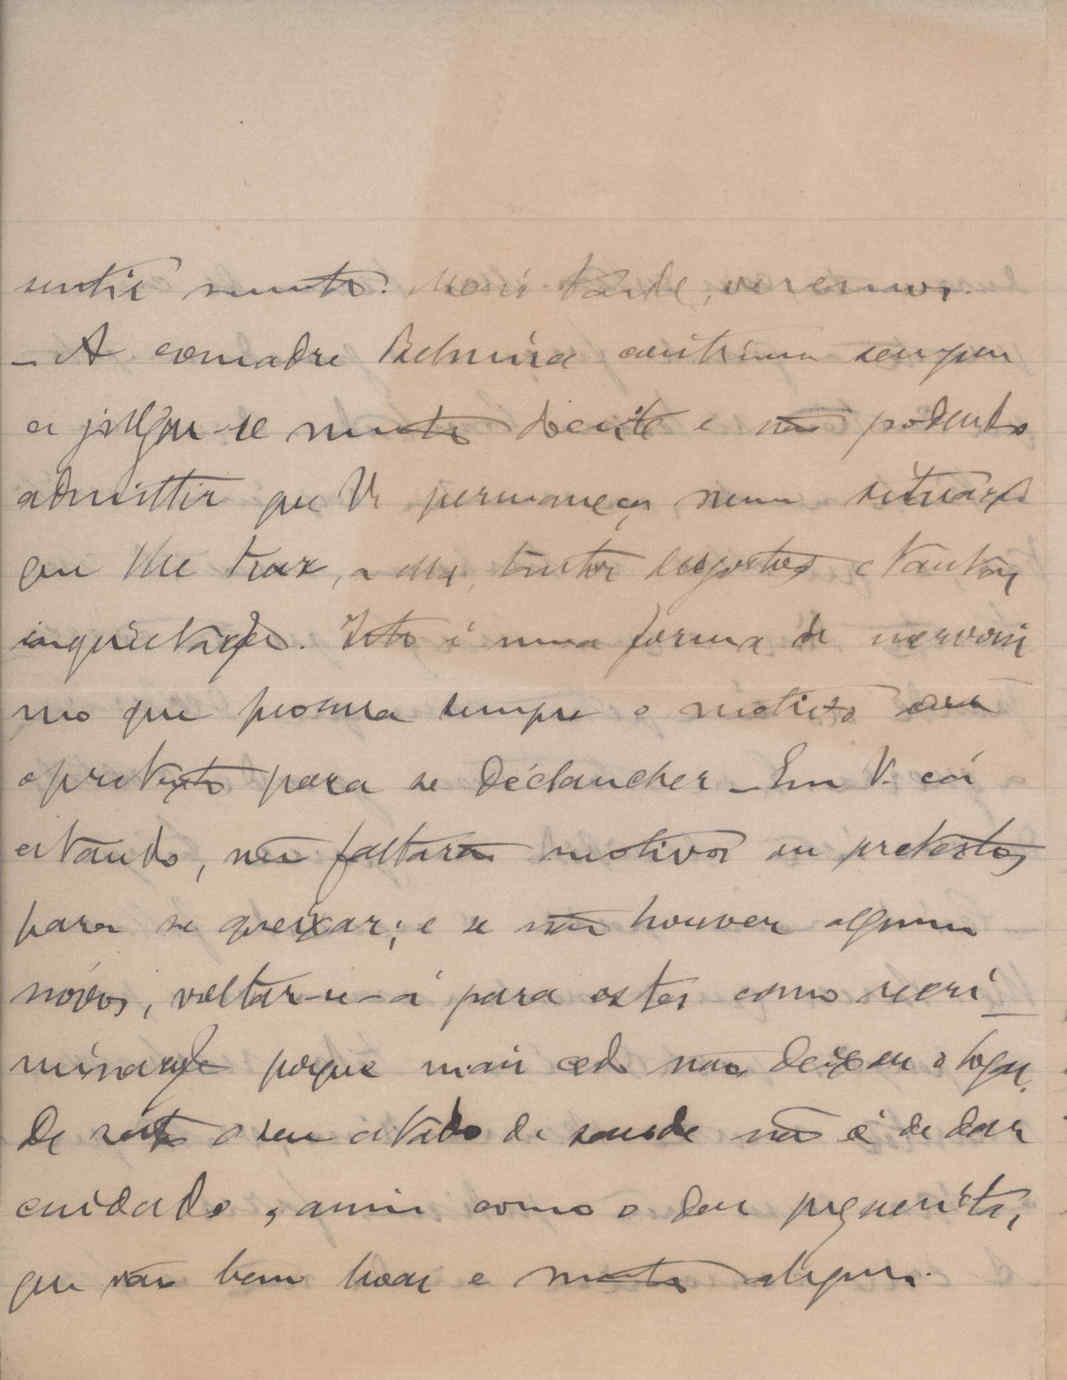 sentir muito. Mais tarde, veremos.
– A comadre Belmira continua sempre
a julgar-se muito doente e não podendo
admittir que V. permaneça numa situação
que lhe traz, a ella, tantos desgostos e tantas
inquietações. Isto é uma forma de nervosis
mo que procura sempre o motivo ou
o pretexto para se déclancher – Em V. cá
estando, não faltarão motivos ou pretextos
para se queixar; e se não houver alguns
nóvos, voltar-se-á para estes como recri
minação porque mais cedo não deixou o logar.
De resto o seu estado de saude não é de dar
cuidado, assim como o das pequenitas,
que vão bem boas e muito alegres.